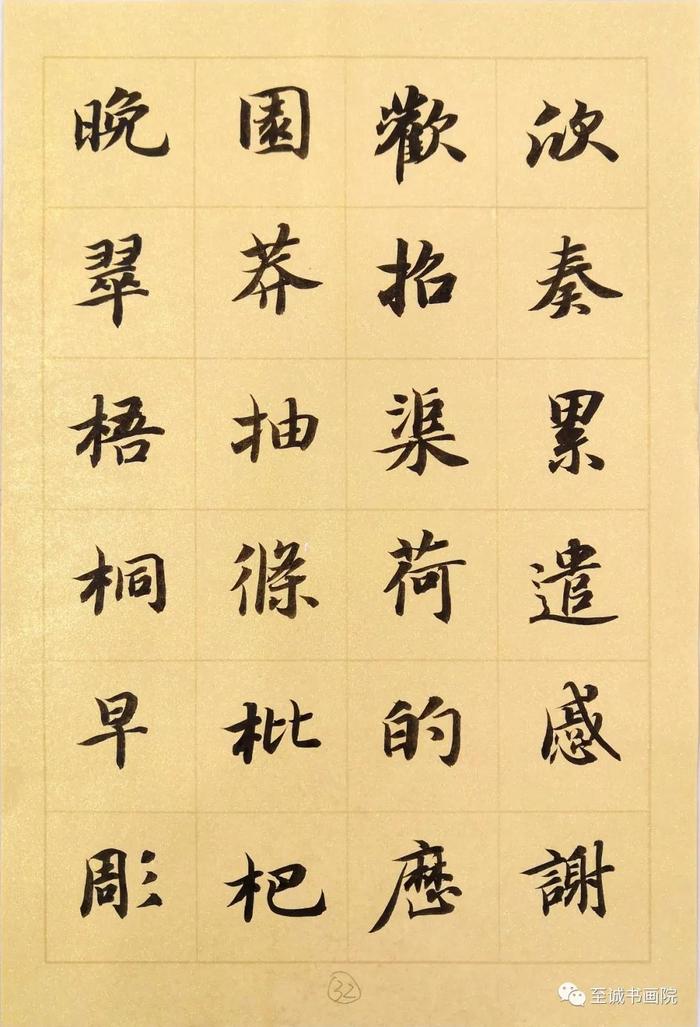 欣奏累遣慼謝
歡招渠荷的歷
園莽抽條枇杷
晚翠梧桐早彫
32
至诚书画院